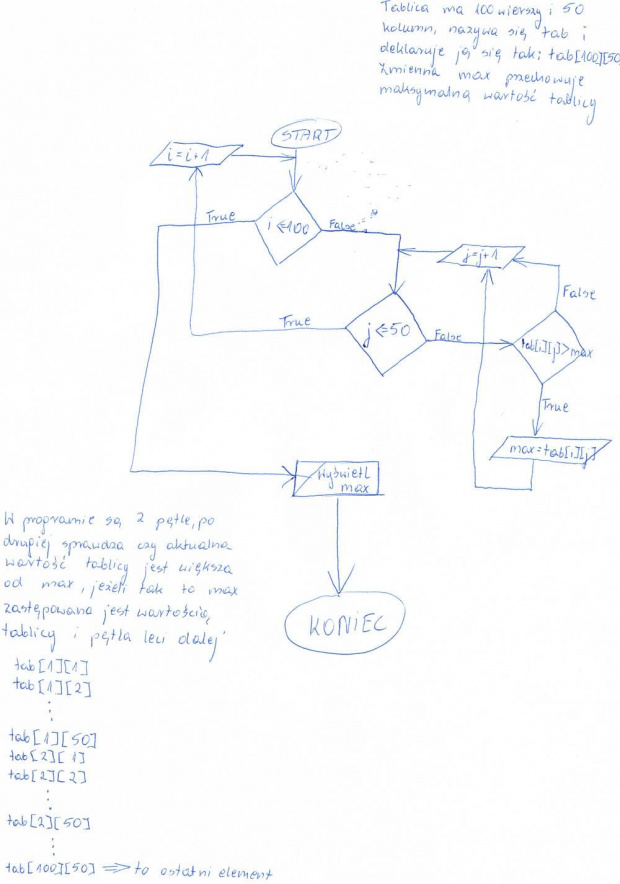 Tablica ma 100 wierszy i 50
kolumn, nazywa się tab i
deklaruje ją się tak: tab[100][50
Zmienna max przechowuje
maksymalną wartość tablicy
START
i=i+1
True
i<=100
False
j=j+1
False
True
j<=50
False
tab[i][j]>max
True
max=tab[i][j]
Wyświetl
max
W programie są 2 pętle, po
drugiej sprawdza czy aktualna
wartość tablicy jest większa
od max, jeżeli tak to max
zastępowana jest wartością
tablicy i pętla leci dalej
KONIEC
tab[1][1]
tab[1][2]
⋮
tab[1][50]
tab[2][1]
tab[2][2]
⋮
tab[2][50]
⋮
tab[100][50] => to ostatni element